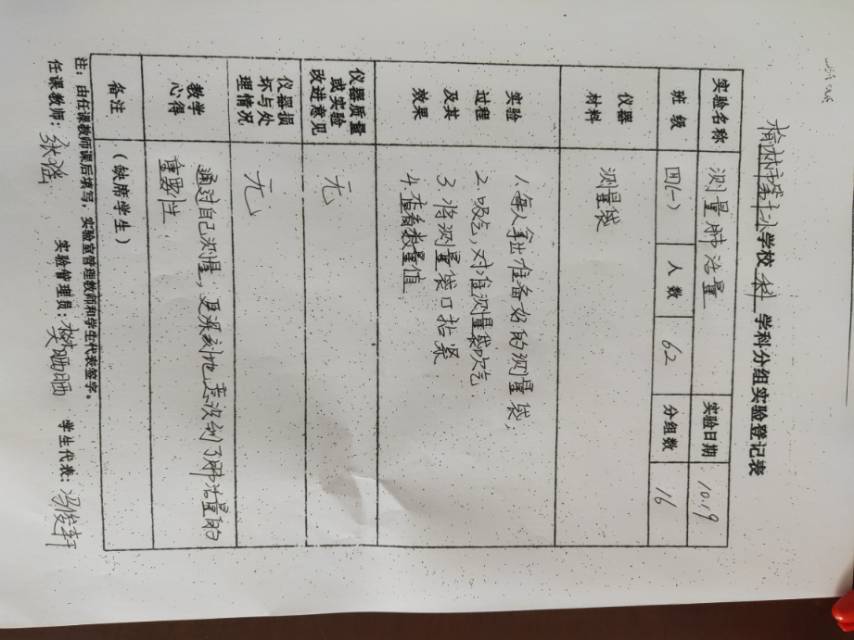 榆林市第十小学校 科 学科分组实验登记表
实验名称 测量肺活量 实验日期 10.19
班级 四(一) 人数 62 分组数 16
仪器
材料
测量袋
实验
过程
及其
效果
1.每人拿出准备好的测量袋;
2.吸气,对准测量袋吹气.
3.将测量袋口捏紧
4.查看数量值.
仪器质量
或实验
改进意见
无
仪器损
坏与处
理情况
无
教学
心得
通过自己测量,更深刻地意识到了肺活量的
重要性.
备注
(缺席学生)
注:由任课教师课后填写,实验室管理教师和学生代表签字。
任课教师: 张 实验管理员: 樊晒晒 学生代表: 冯俊轩